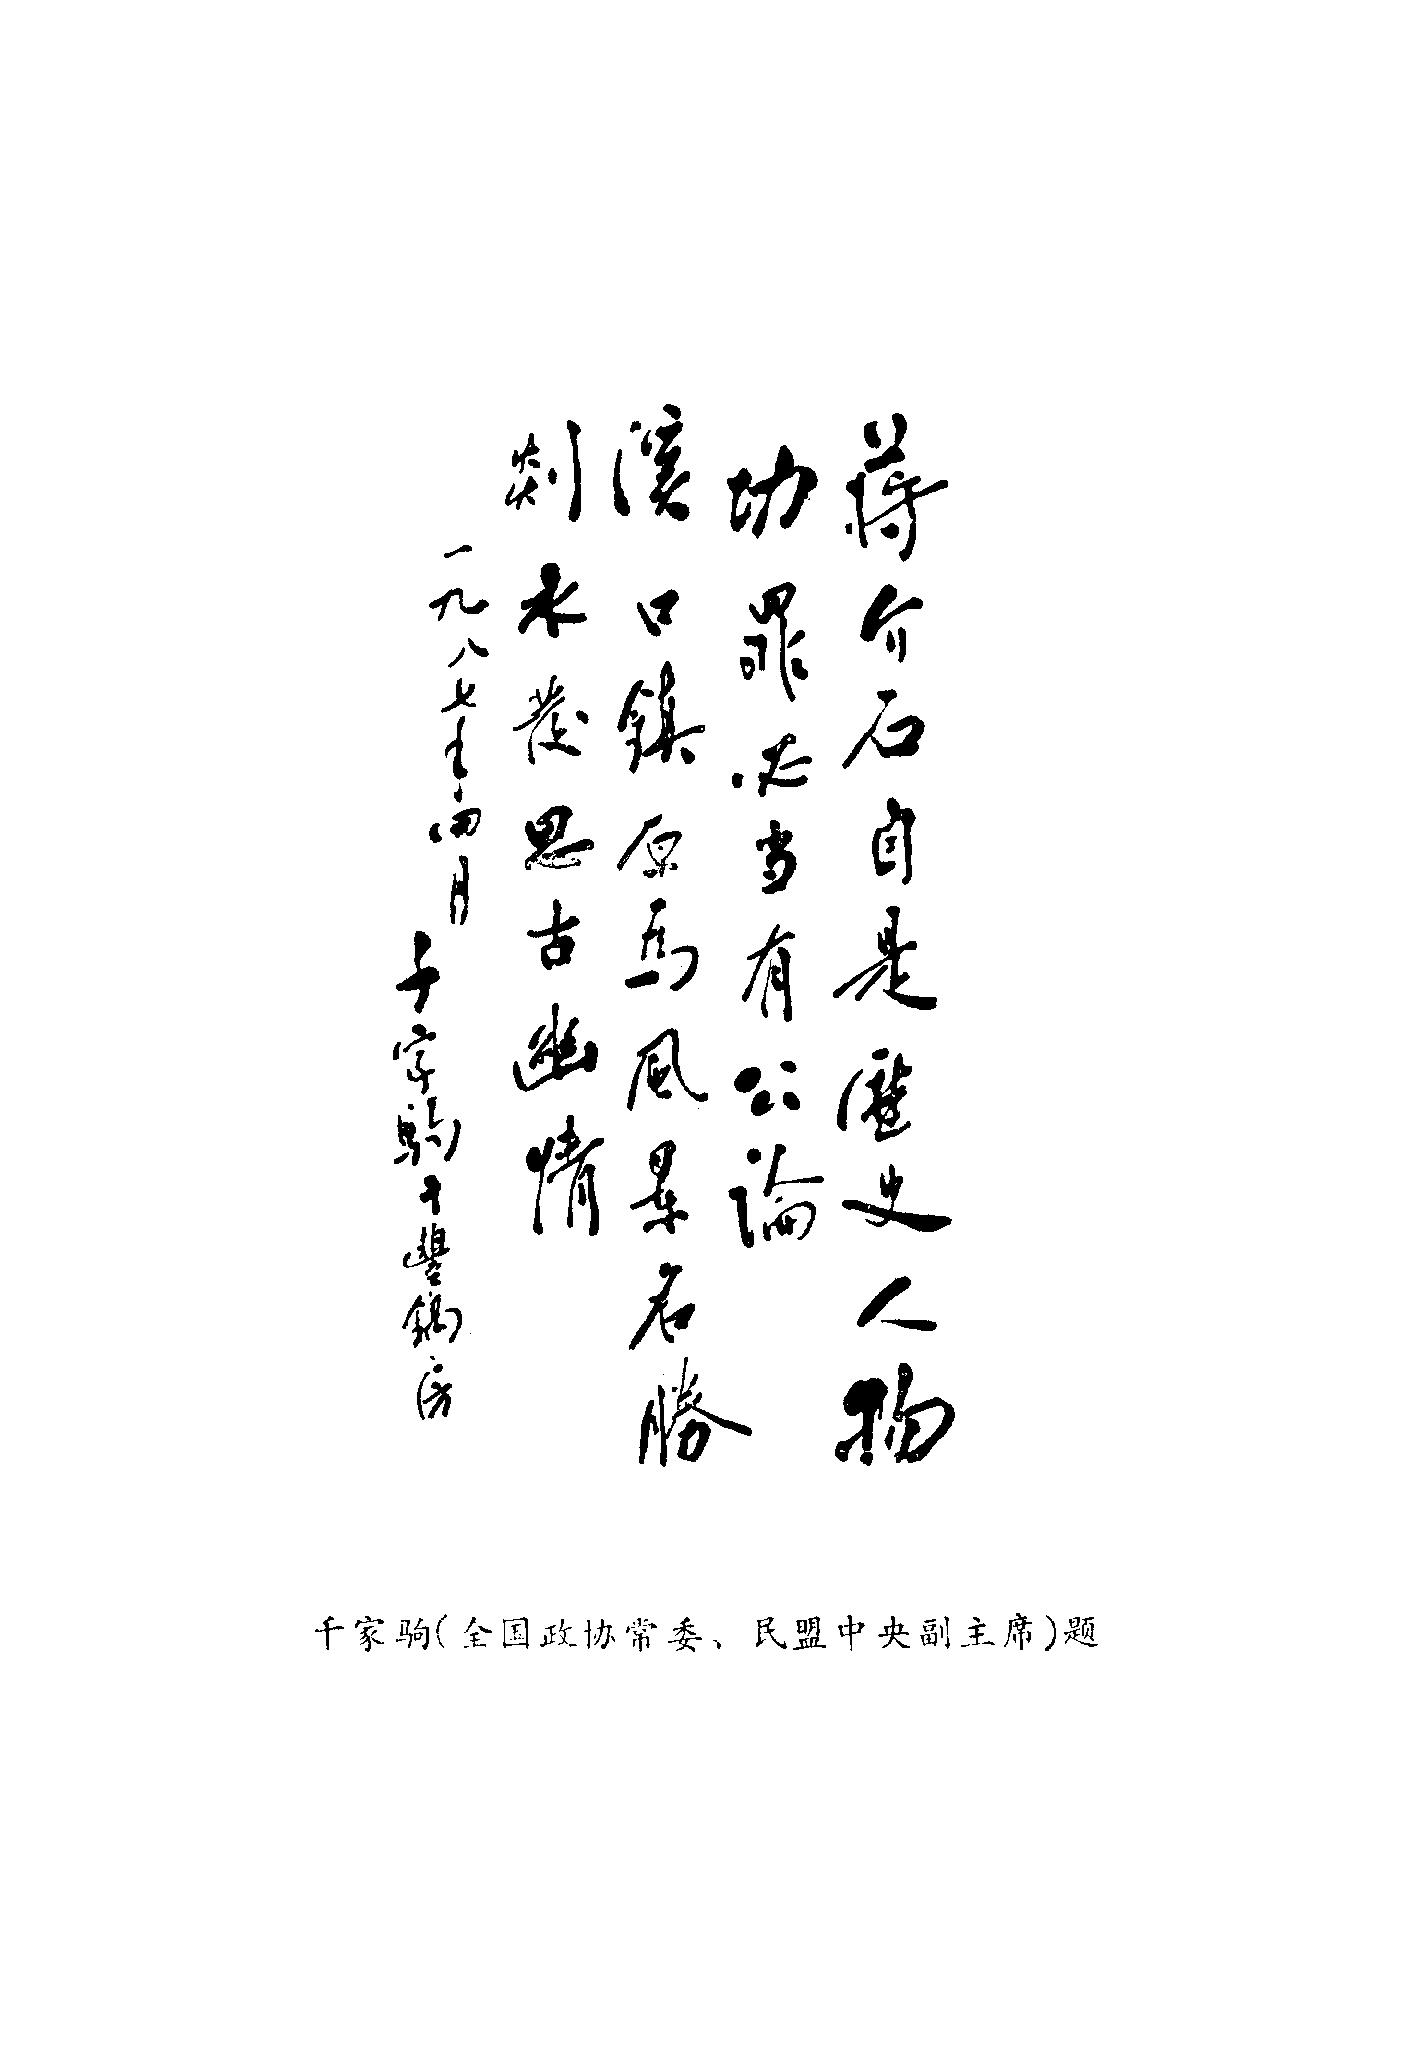 蒋介石自是歷史人物
功罪必当有公論
溪口鎮原為風景名勝
剡水发思古幽情
一九八七年四月
千家驹于豐鎬房
千家驹(全国政协常委、民盟中央副主席)题